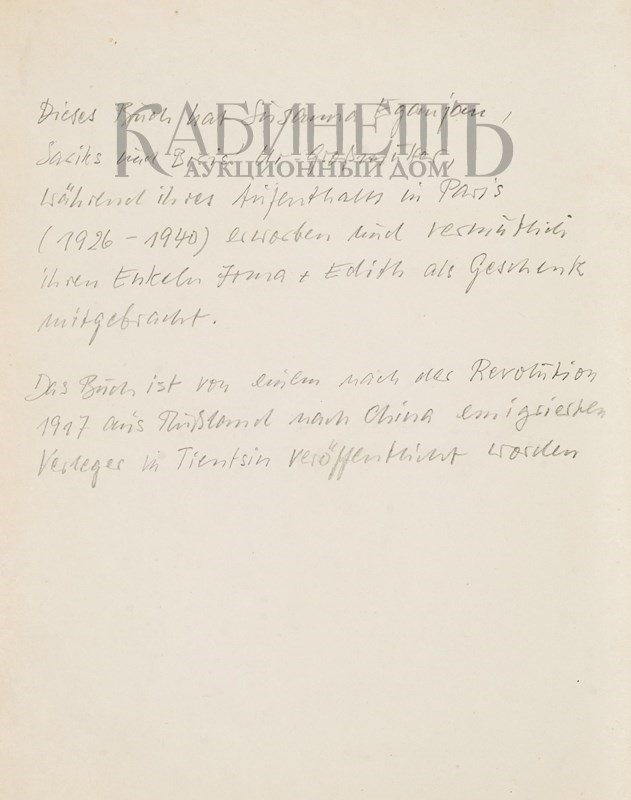 Dieses Buch hat Susanna Eganjan,
КАБИНЕТЪ
АУКЦИОННЫЙ ДОМ
und Ur-Großmutter,
während ihres Aufenthalts in Paris
(1926 - 1940) erworben und vermutlich
ihren Enkeln Irma + Edith als Geschenk
mitgebracht.
Das Buch ist von einem nach der Revolution
1917 aus Rußland nach China emigrierten
Verleger in Tientsin veröffentlicht worden